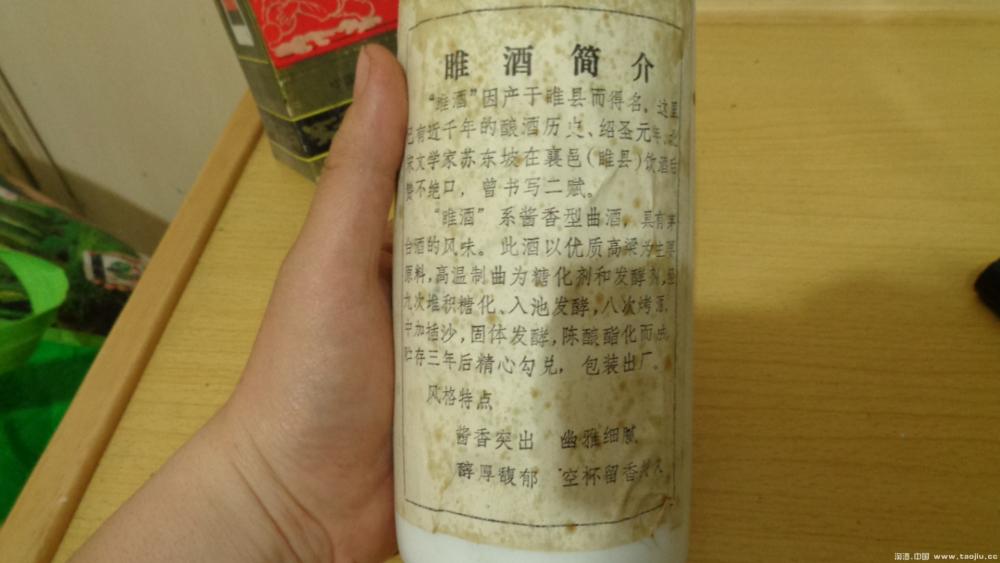 睢酒简介
“睢酒”因产于睢县而得名。这里
已有近千年的酿酒历史、绍圣元年,北
宋文学家苏东坡在襄邑(睢县)饮酒后
赞不绝口,曾书写二赋。
“睢酒”系酱香型曲酒,具有茅
台酒的风味。此酒以优质高粱为主要
原料,高温制曲为糖化剂和发酵剂,经
九次堆积糖化、入池发酵,八次烤酒,
中加插沙,固体发酵,陈酿酯化而成,
贮存三年后精心勾兑,包装出厂。
风格特点
酱香突出 幽雅细腻
醇厚馥郁 空杯留香
淘酒.中国 www.taojiu.cc